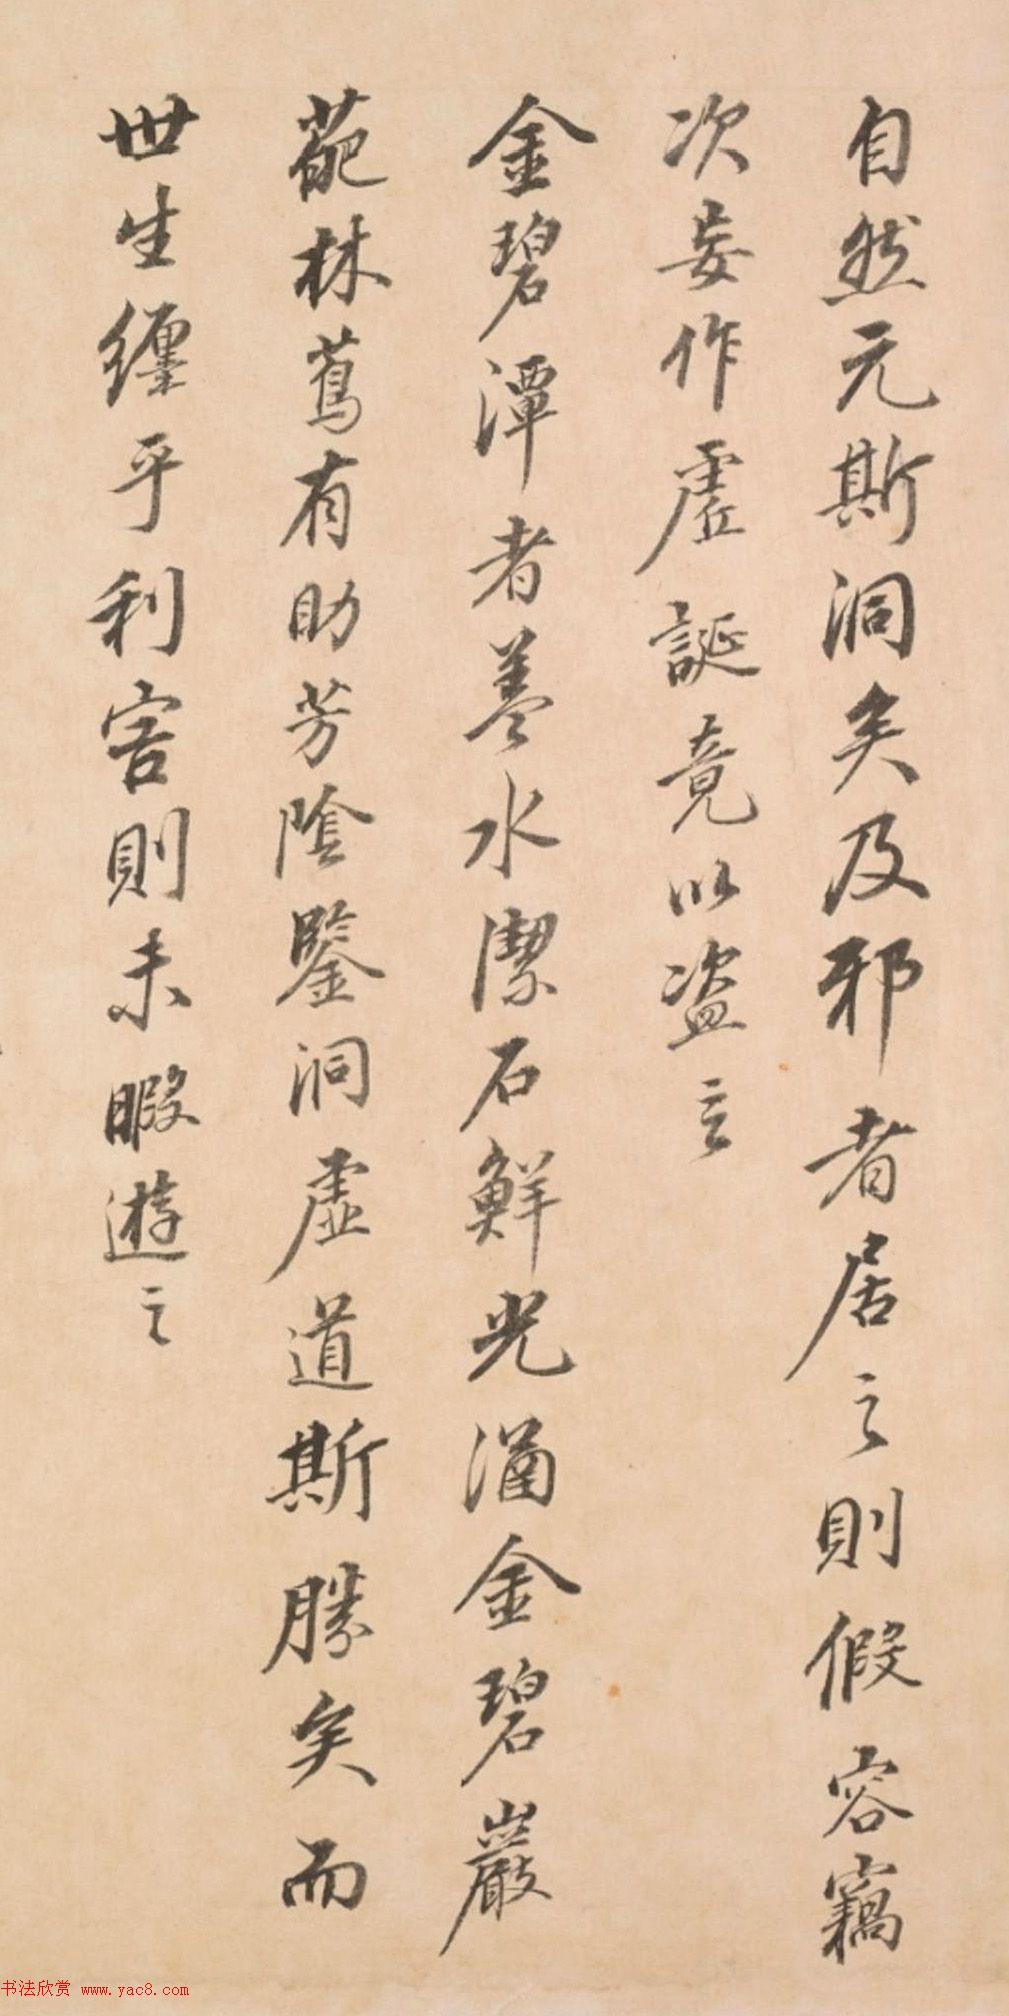 自然元斯洞矣及邪者居之則假容竊
次妄作虛誕竟以盜言
金碧潭者蓋水潔石鮮光涵金碧巖
葩林蔦有助芳陰鑒洞虛道斯勝矣而
世生纏乎利害則未暇遊之
书法欣赏 www.yac8.com